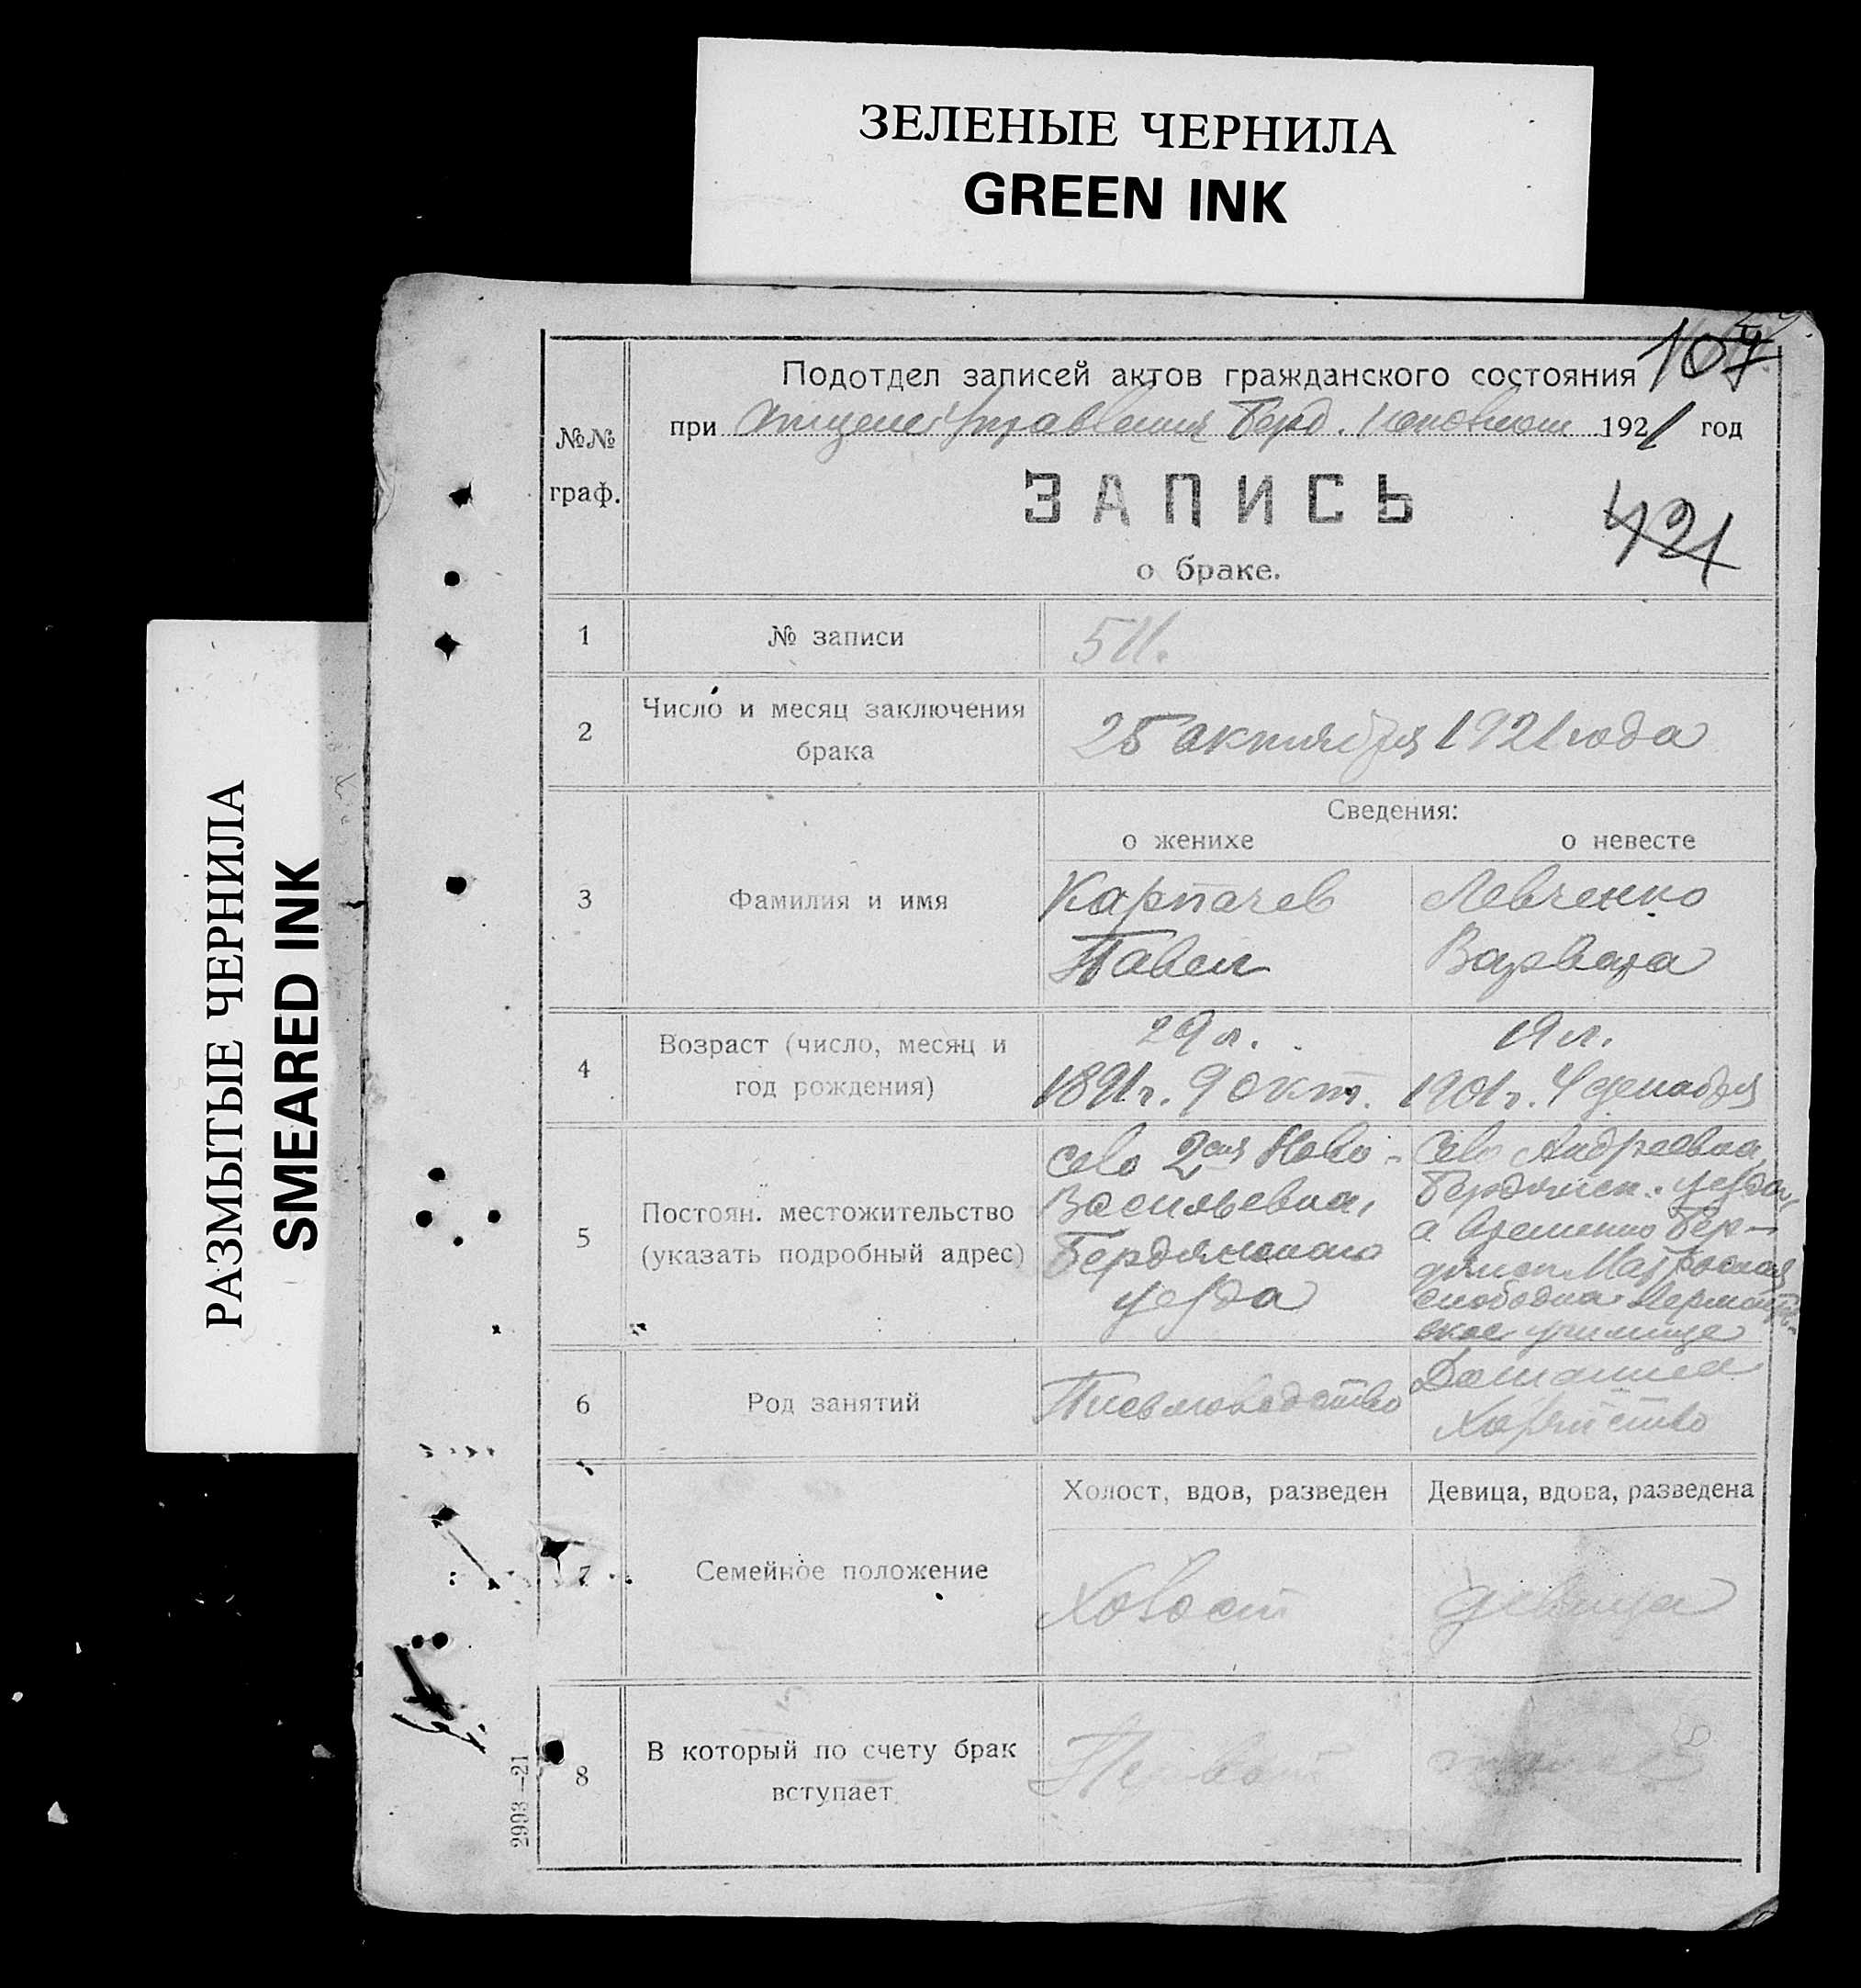 ЗЕЛЕНЫЕ ЧЕРНИЛА
GREEN INK
РАЗМЫТЫЕ ЧЕРНИЛА
SMEARED INK
107
Подотдел записей актов гражданского состояния
№№
граф.
при Отделе Управления Берд. 1921 год
ЗАПИСЬ
421
о браке.
1 № записи 511.
2 Число и месяц заключения
брака
25 октября 1921 года
Сведения:
о женихе о невесте
3 Фамилия и имя
Карпачев Левченко
Павел Варвара
4 Возраст (число, месяц и
год рождения)
29 л. 19 л.
1891 г. 9 окт. 1901 г. 4 декабря
5 Постоян. местожительство
(указать подробный адрес)
село 2ая Ново-
Васильевка,
Бердянского
уезда
Село Андреевка,
Бердянск. уезда,
а временно Бер-
дянск Матросская
слободка
ское училище
6 Род занятий
Письмоводство
Домашнее
Хозяйство
7 Семейное положение
Холост, вдов, разведен Девица, вдова, разведена
Холост девица
8 В который по счету брак
вступает
Первый
2993—21